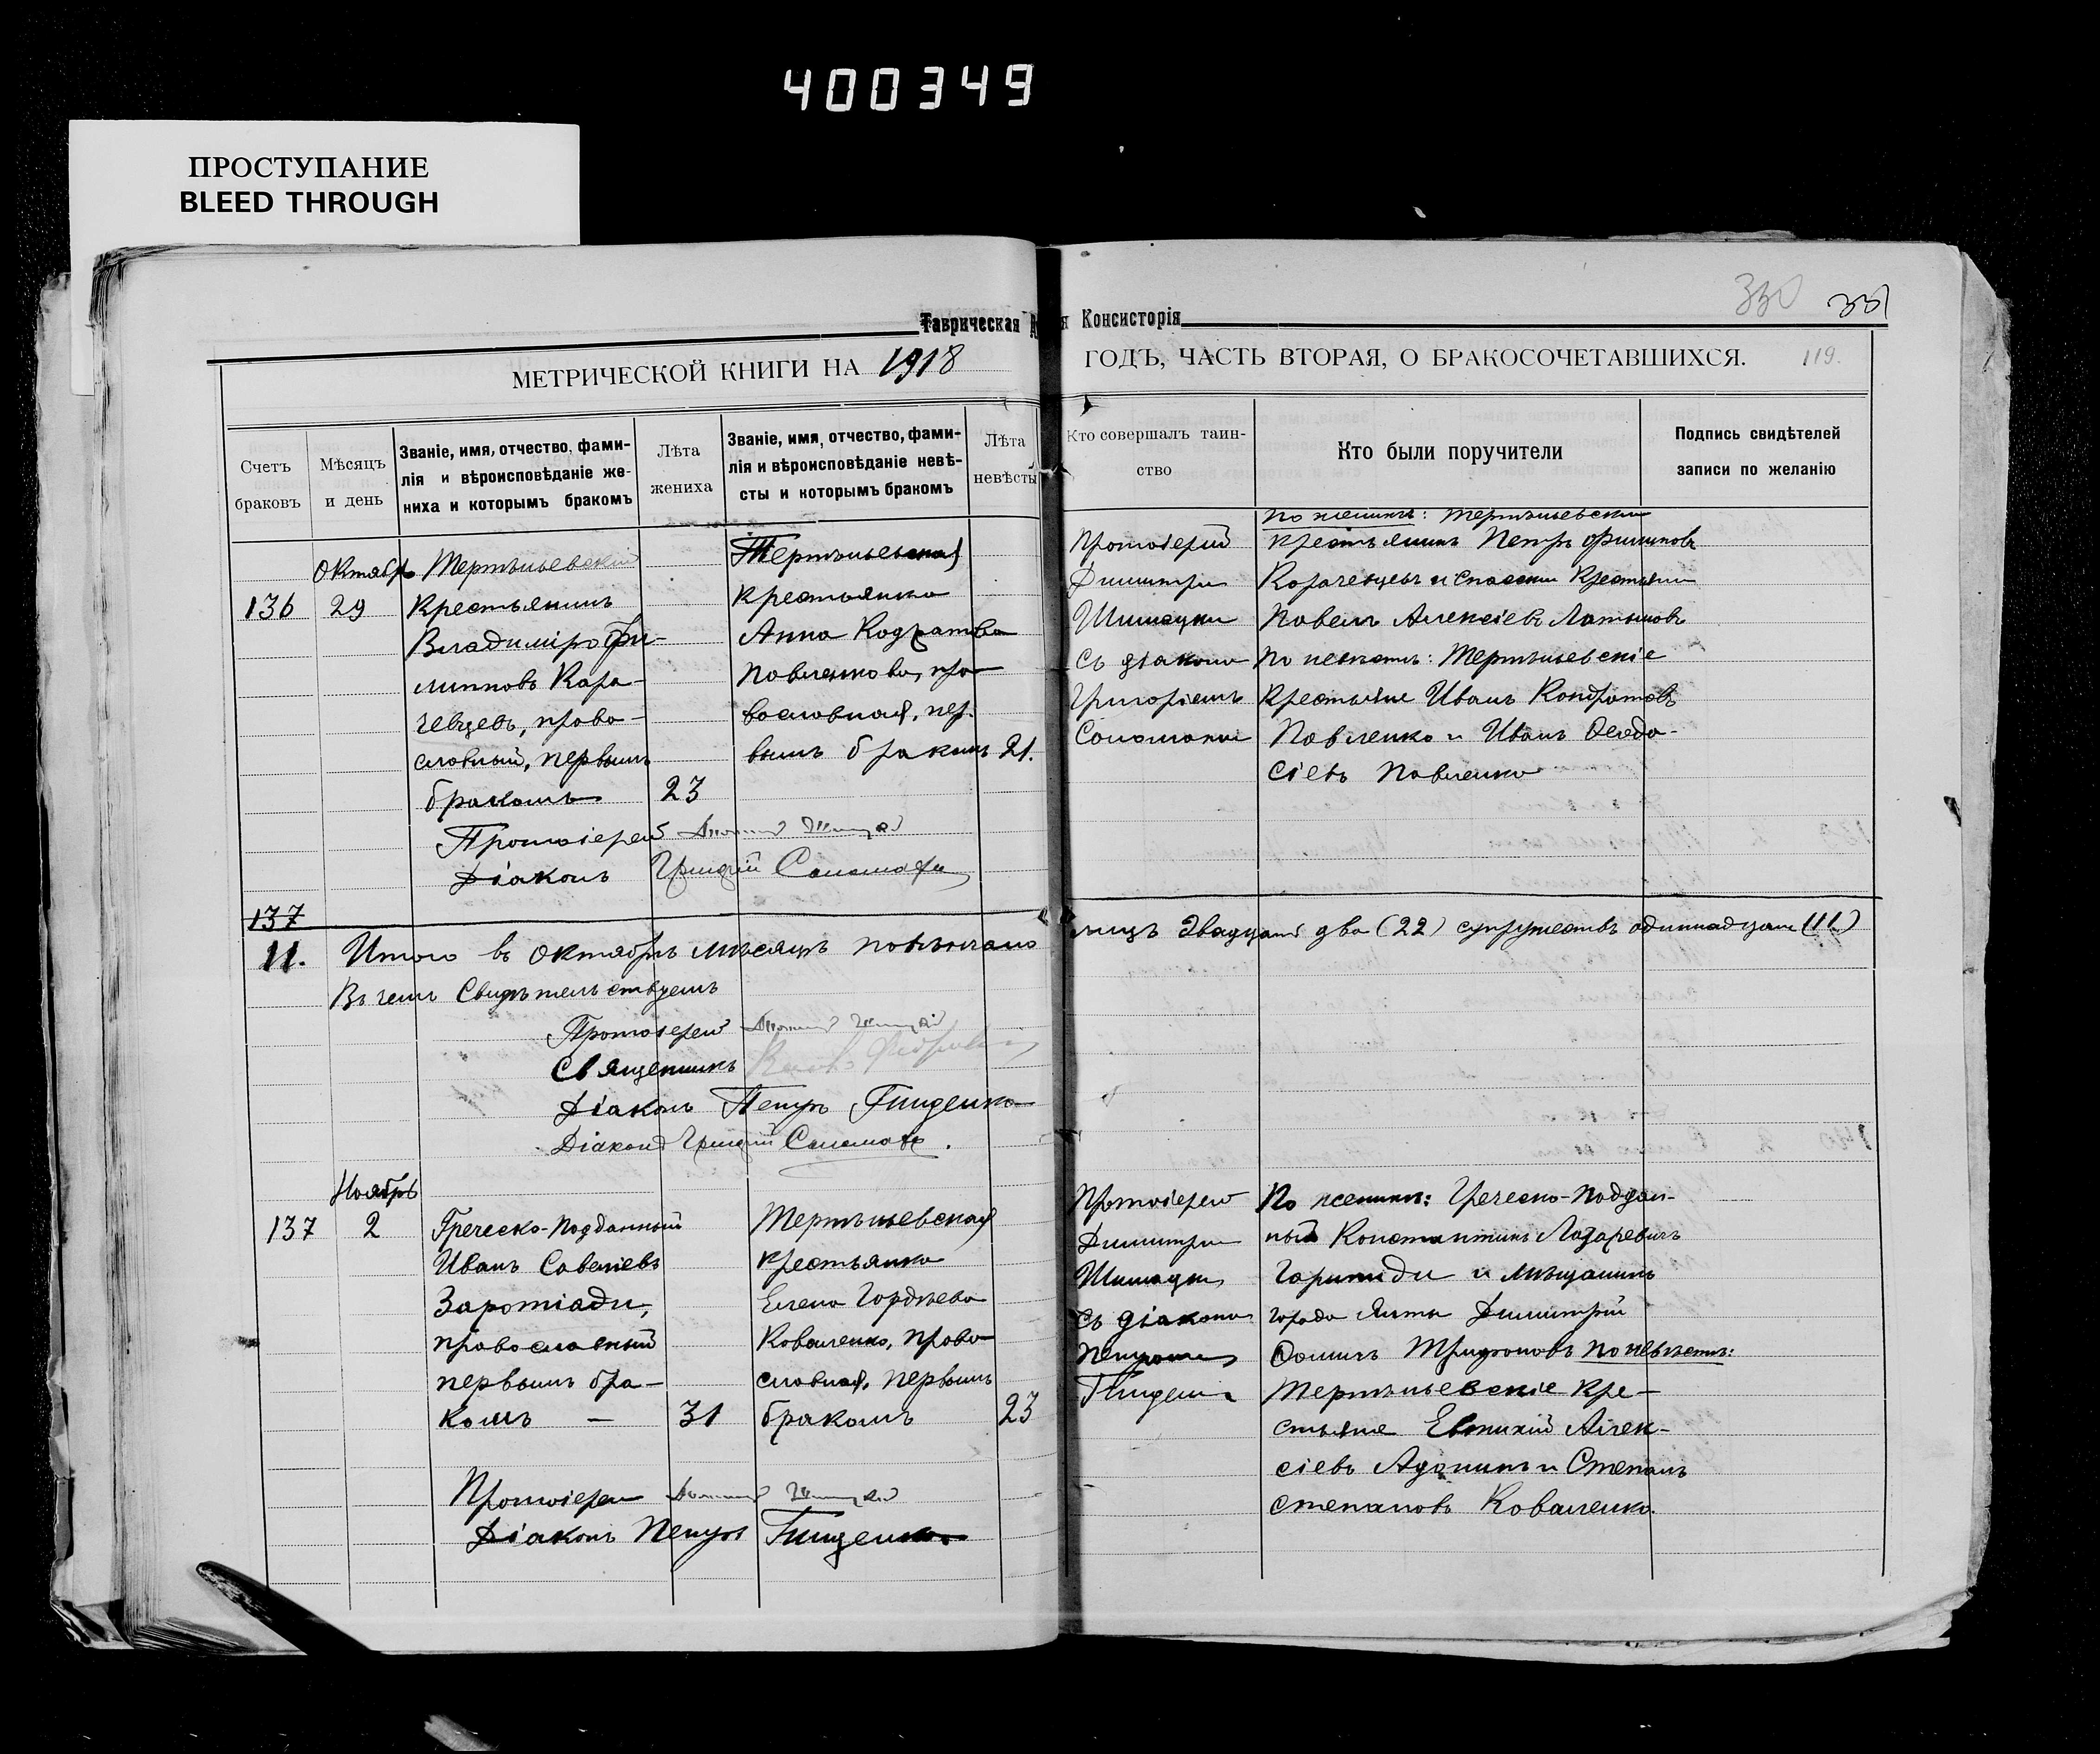 400349
ПРОСТУПАНИЕ
BLEED THROUGH
330 331
Таврическая Консисторія
МЕТРИЧЕСКОЙ КНИГИ НА 1918
ГОДЪ, ЧАСТЬ ВТОРАЯ, О БРАКОСОЧЕТАВШИХСЯ. 119.
Счетъ
браковъ
Мѣсяцъ
и день
Званіе, имя, отчество, фами-
лія и вѣроисповѣданіе же-
ниха и которымъ бракомъ
Лѣта
жениха
Званіе, имя, отчество, фами-
лія и вѣроисповѣданіе невѣ-
сты и которымъ бракомъ
Лѣта
невѣсты
Кто совершалъ таин-
ство
Кто были поручители
Подпись свидѣтелей
записи по желанію
136
Октябрь
29
Терпѣньевскій
Крестьянинъ
Владиміръ Фи-
липповъ Кара-
чевцевъ, право-
славный, первымъ
бракомъ
23
Терпѣньевская
крестьянка
Анна Кодратова
Павленкова, пра
вославная, пер.
вымъ бракомъ
21.
Протоіерей
Димитрій
Съ діакономъ
Григоріемъ
По женихѣ: Терпѣньевскій
крестьянинъ Петръ Филиповъ
Карачевцевъ и Крестьянинъ
Павелъ Алексіевъ Латышовъ
По невѣстѣ: Терпѣньевскіе
Крестьяне Иванъ Кондратовъ
Павленко и Иванъ Феодо-
сіевъ Павленко
Протоіерей
Діаконъ Григорій
137
11. Итого въ Октябрѣ мѣсяцѣ повѣнчано
лицъ двадцать два (22) супружествъ одиннадцать (11)
Въ чемъ Свидѣтельствуемъ
Протоіерей
Священникъ
Діаконъ Петръ Гниденко
Діаконъ Григорій
Ноябрь
137
2
Греческо-Подданный
Иванъ Савеліевъ
Заротіади,
православный
первымъ бра-
комъ —
31
Терпѣньевская
крестьянка
Елена Гордѣева
Коваленко, право
славная, первымъ
бракомъ
23
Протоіерей
Димитрій
Съ діакономъ
Петромъ
По женихѣ: Греческо-поддан-
ный Константинъ Лазаревичъ
и мѣщанинъ
города Ялты Димитрій
Фоминъ Трифоновъ по невѣстѣ:
Терпѣньевскіе кре-
стьяне Евтихій Алек-
сіевъ и Степанъ
Степановъ Коваленко.
Протоіерей
Діаконъ Петръ Гниденко